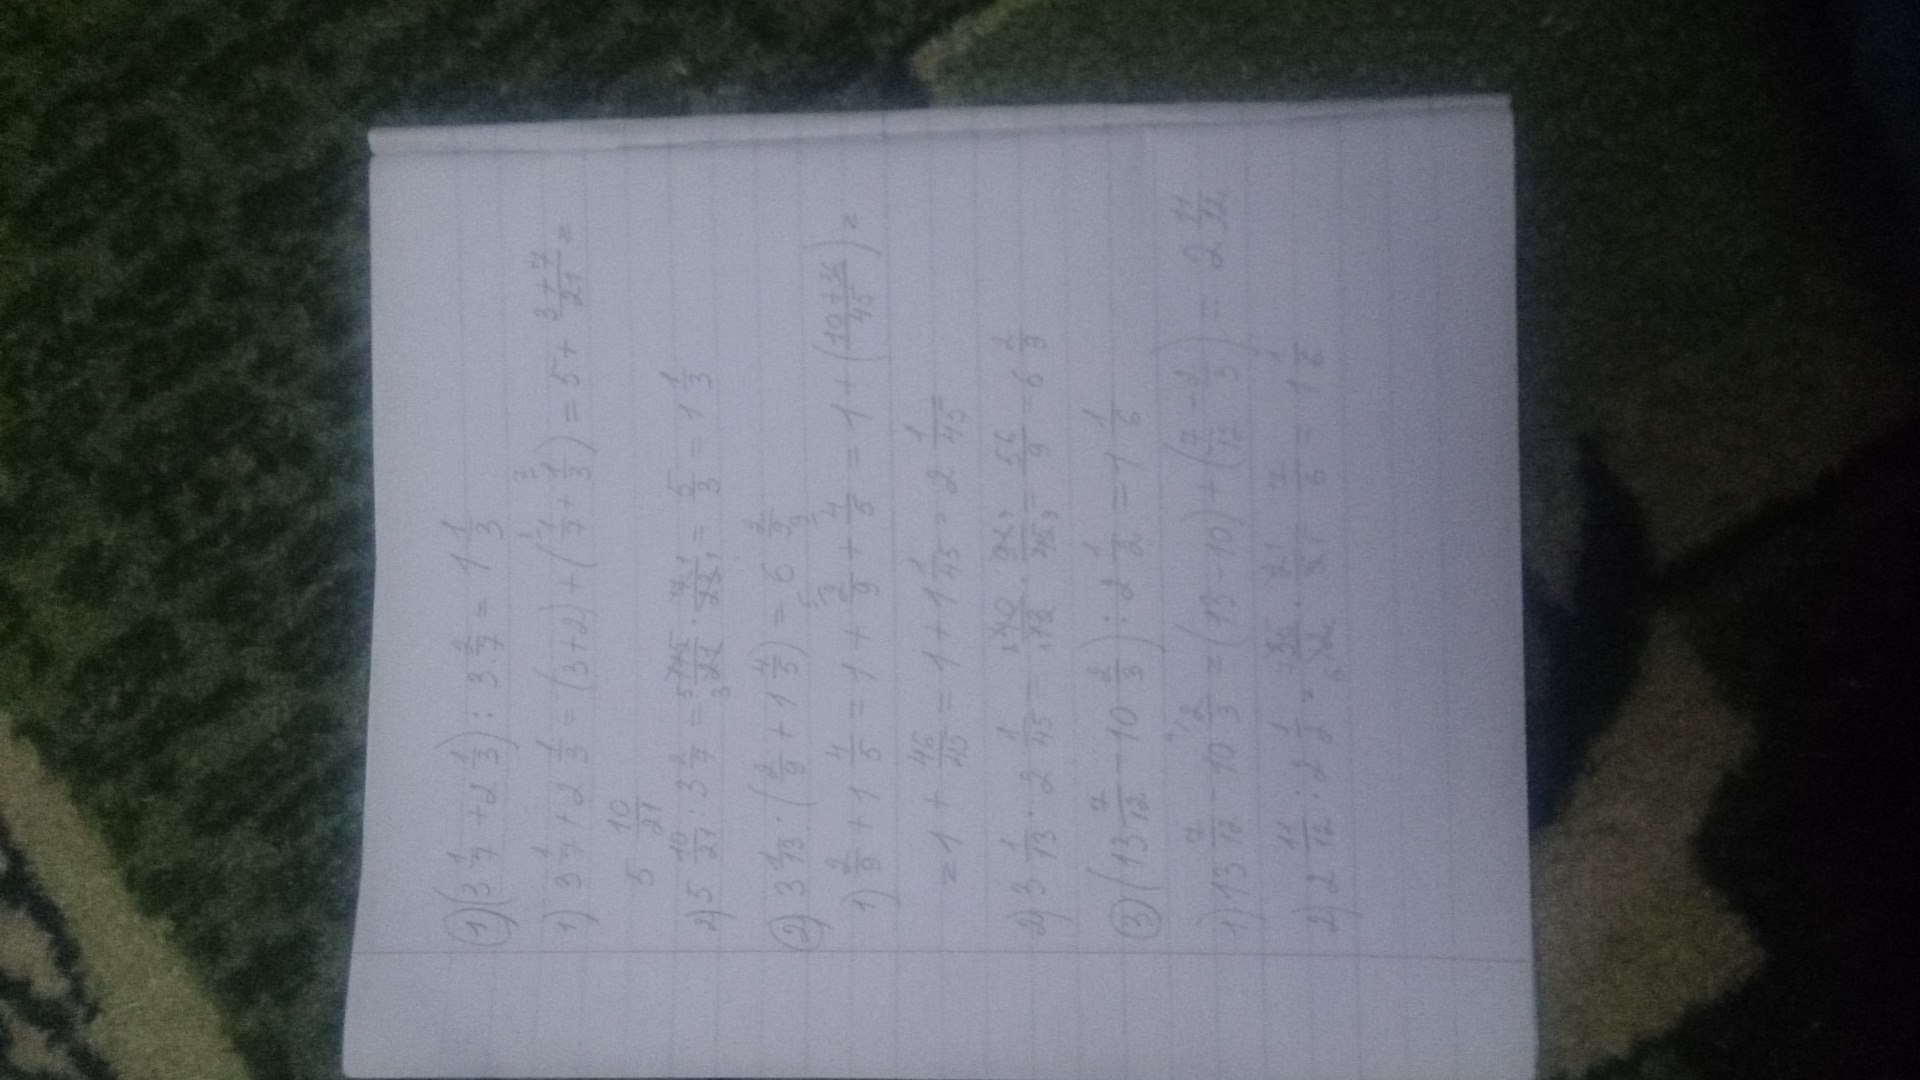 ① (3 1/7 + 2 1/3) : 3 2/7 = 1 1/3
1) 3 1/7 + 2 1/3 = (3+2) + (1/7 + 1/3) = 5 + 3+7/21 =
5 10/21
2) 5 10/21 : 3 2/7 = 115/21 · 7/23 = 5/3 = 1 1/3
② 3 1/13 · (2/9 + 1 4/5) = 6 2/9
1) 2/9 + 1 4/5 = 1 + 2/9 + 4/5 = 1 + (10+36/45) =
= 1 + 46/45 = 1 + 1 1/45 = 2 1/45
2) 3 1/13 · 2 1/45 = 40/13 · 91/45 = 56/9 = 6 2/9
③ (13 7/12 - 10 2/3) : 2 1/2 = 1 1/6
1) 13 7/12 - 10 2/3 = (13-10) + (7/12 - 2/3) = 2 11/12
2) 2 11/12 : 2 1/2 = 35/12 · = 7/6 = 1 1/6